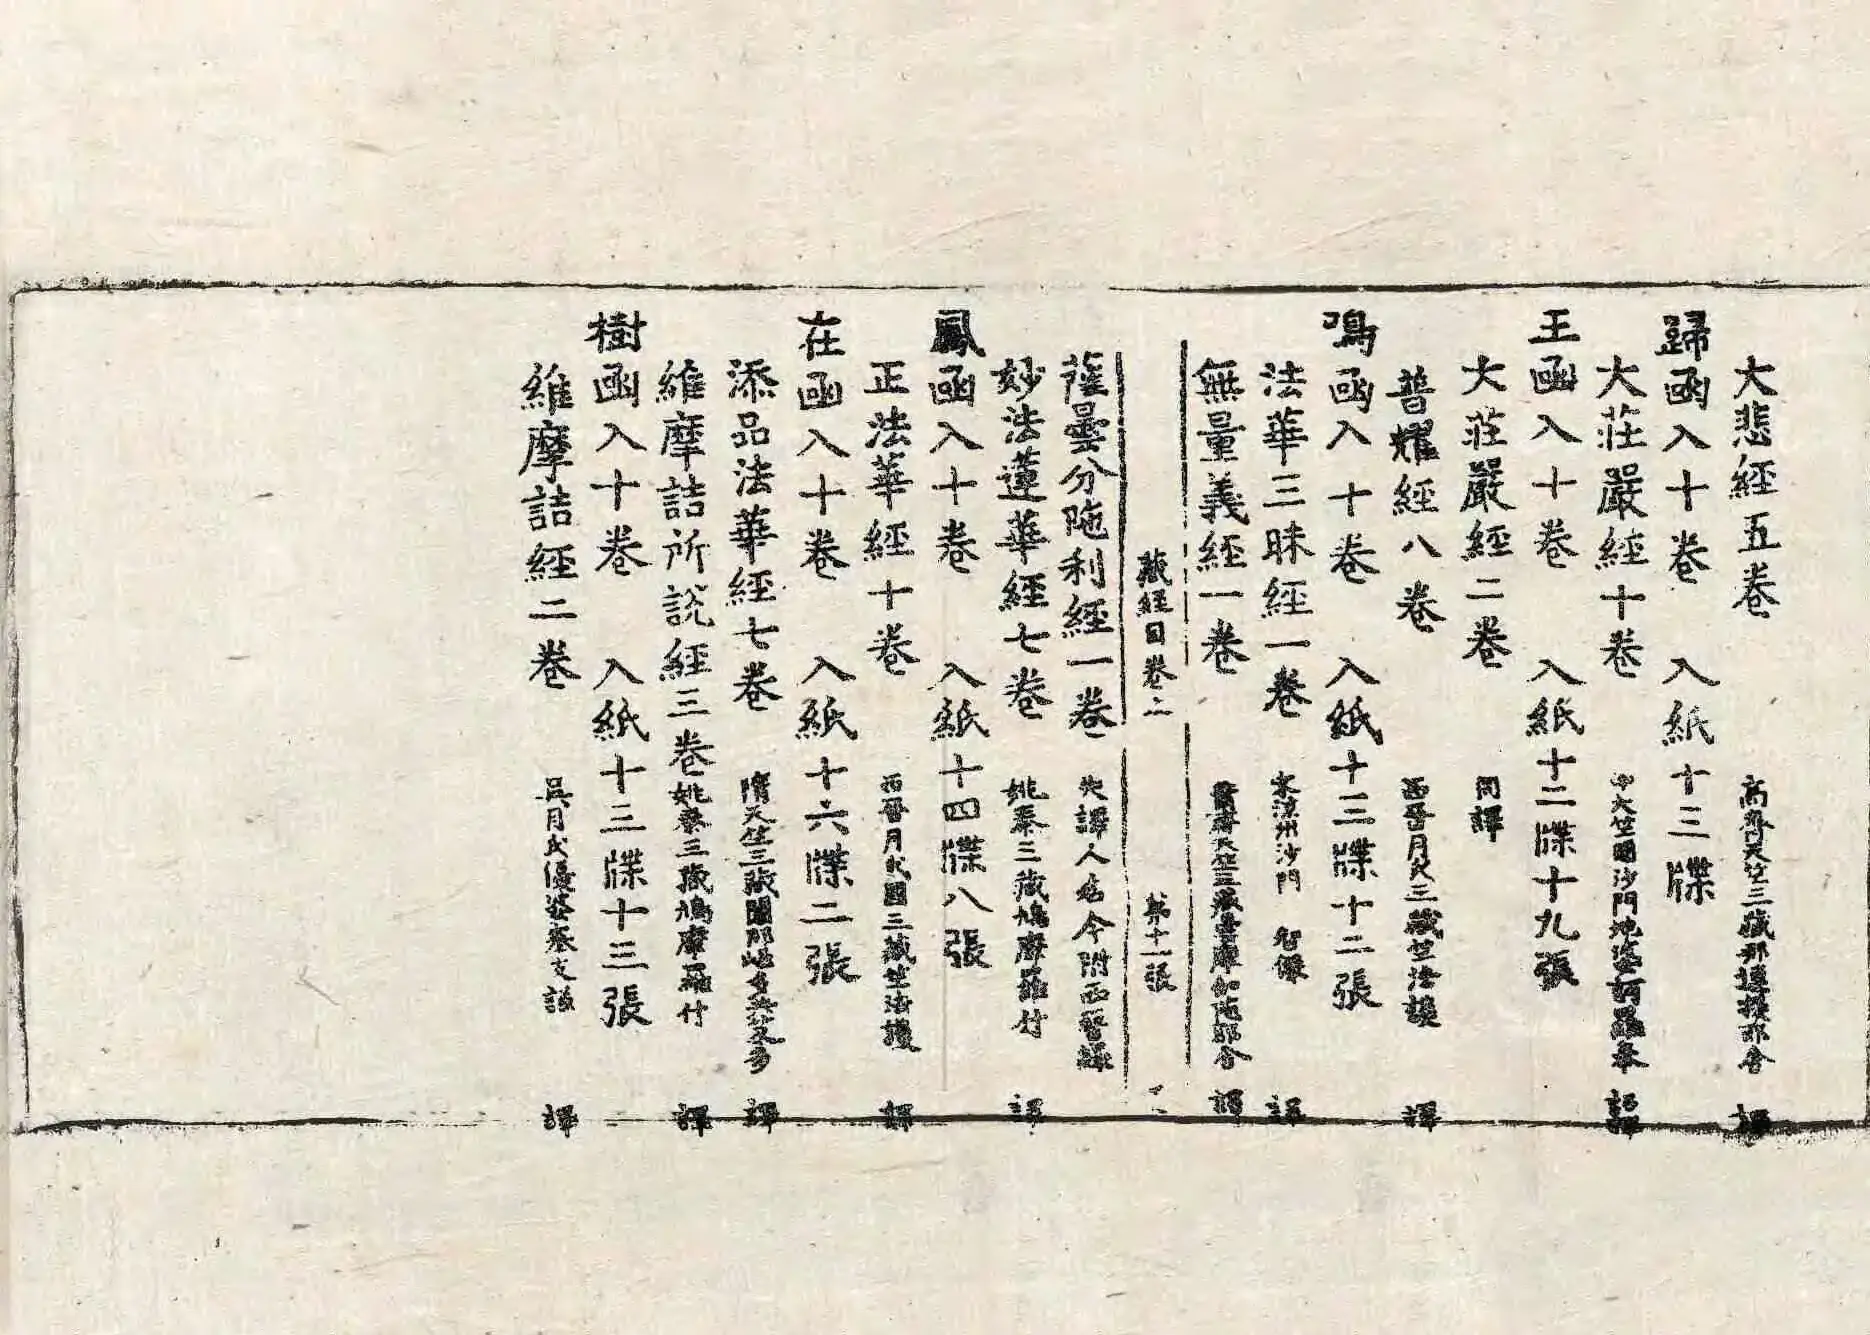 大悲經五卷 高齊天竺三藏那連提耶舍 譯
歸函入十卷 入紙十三牒
大莊嚴經十卷 中天竺國沙門地婆訶羅奉 譯
王函入十卷 入紙十二牒十九張
大莊嚴經二卷 同譯
普耀經八卷 西晉月氏三藏竺法護 譯
鳴函入十卷 入紙十三牒十二張
法華三昧經一卷 宋涼州沙門 智儼 譯
無量義經一卷 蕭齊天竺三藏曇摩伽陀耶舍 譯
藏經目卷上 第十一張
薩曇分陁利經一卷 失譯人名今附西晉録
妙法蓮華經七卷 姚秦三藏鳩摩羅什 譯
鳳函入十卷 入紙十四牒八張
正法華經十卷 西晉月氏國三藏竺法護 譯
在函入十卷 入紙十六牒二張
添品法華經七卷 隋天竺三藏闍那崛多共笈多 譯
維摩詰所說經三卷 姚秦三藏鳩摩羅什 譯
樹函入十卷 入紙十三牒十三張
維摩詰經二卷 吳月氏優婆塞支謙 譯